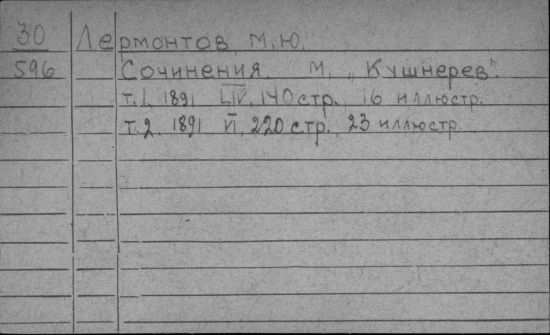 30 Лермонтов, М.Ю.
596 Сочинения. М. „Кушнерев".
т.1. 1891 LIV, 140 стр., 16 иллюстр.
т.2. 1891 VI, 220 стр., 23 иллюстр.